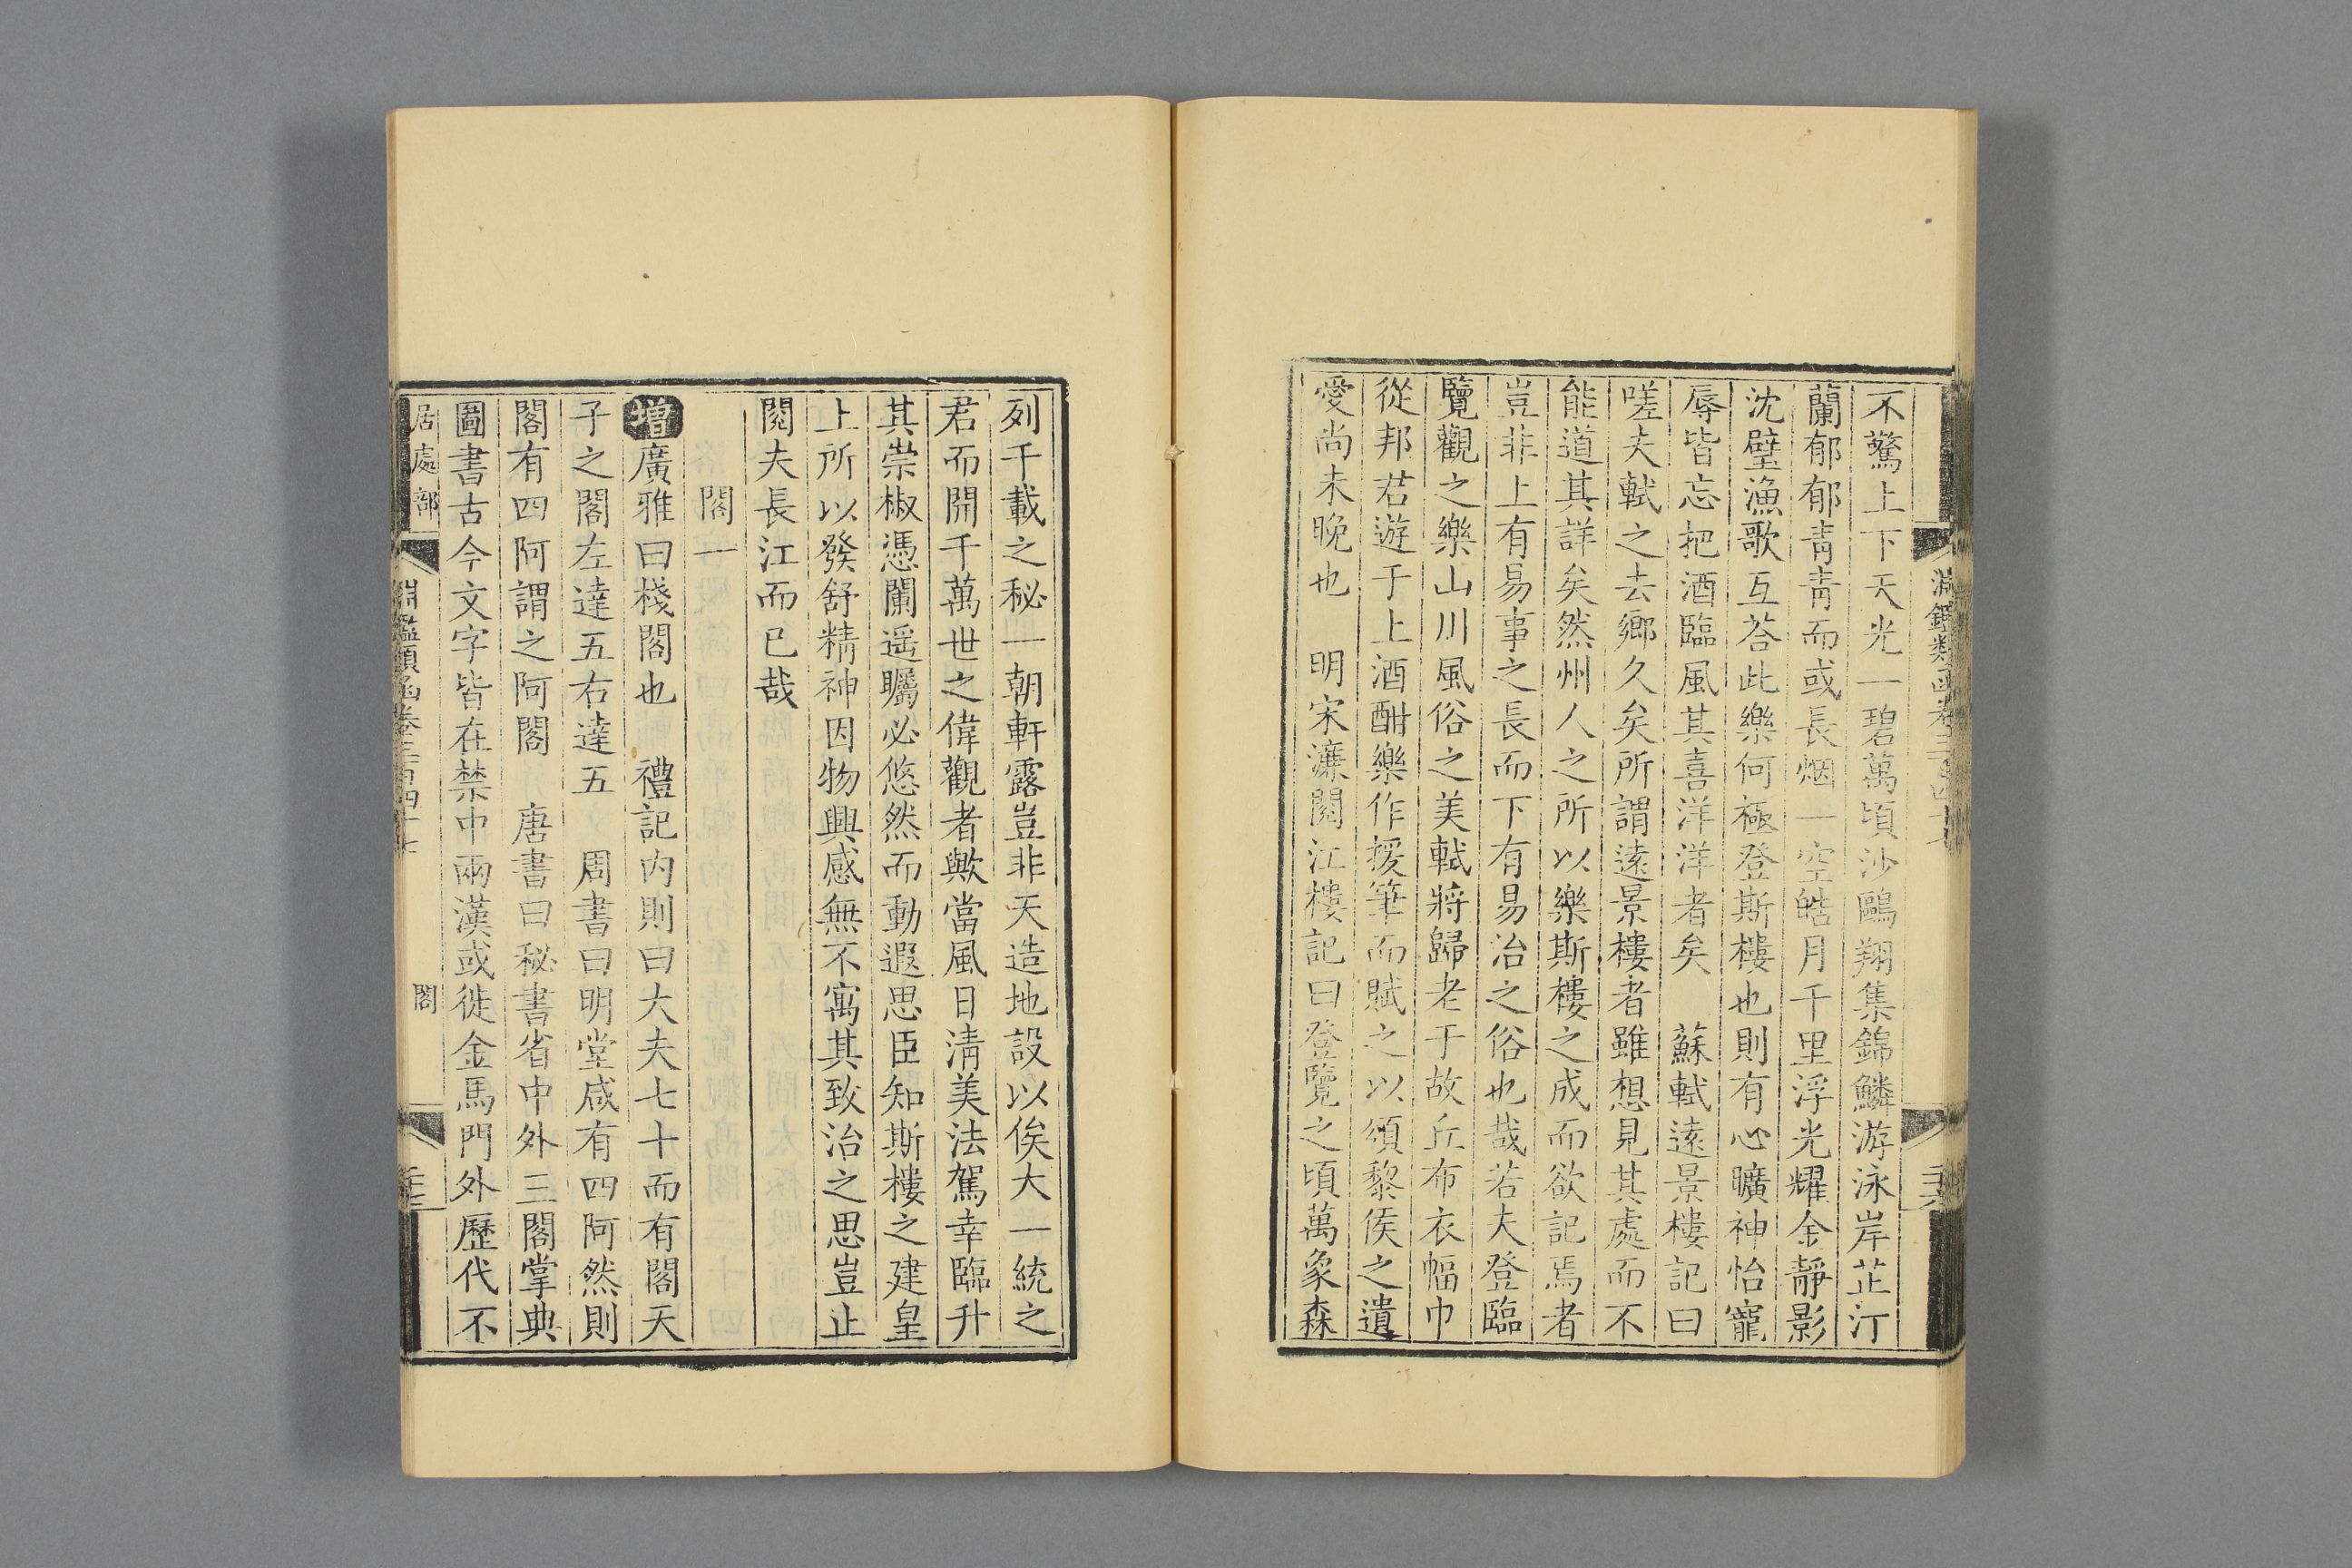 不驚上下天光一碧萬頃沙鷗翔集錦鱗游泳岸芷汀
蘭郁郁靑靑而或長烟一空皓月千里浮光耀金靜影
沈璧漁歌互荅此樂何極登斯樓也則有心曠神怡寵
辱皆忘把酒臨風其喜洋洋者矣　蘇軾遠景樓記曰
嗟夫軾之去鄉久矣所謂遠景樓者雖想見其處而不
能道其詳矣然州人之所以樂斯樓之成而欲記焉者
豈非上有易事之長而下有易治之俗也哉若夫登臨
覽觀之樂山川風俗之美軾將歸老于故丘布衣幅巾
從邦君遊于上酒酣樂作援筆而賦之以頌黎侯之遺
愛尚未晚也　明宋濂閱江樓記曰登覽之頃萬象森
淵鑑類函卷三百四十七
二十六
列千載之秘一朝軒露豈非天造地設以俟大一統之
君而開千萬世之偉觀者歟當風日淸美法駕幸臨升
其崇椒憑闌遥矚必悠然而動遐思臣知斯樓之建皇
上所以發舒精神因物興感無不寓其致治之思豈止
閱夫長江而已哉
閣一
增廣雅曰棧閣也　禮記内則曰大夫七十而有閣天
子之閣左達五右達五　周書曰明堂咸有四阿然則
閣有四阿謂之阿閣　唐書曰秘書省中外三閣掌典
圖書古今文字皆在禁中兩漢或徙金馬門外歷代不
居處部
淵鑑類函卷三百四十七
閣